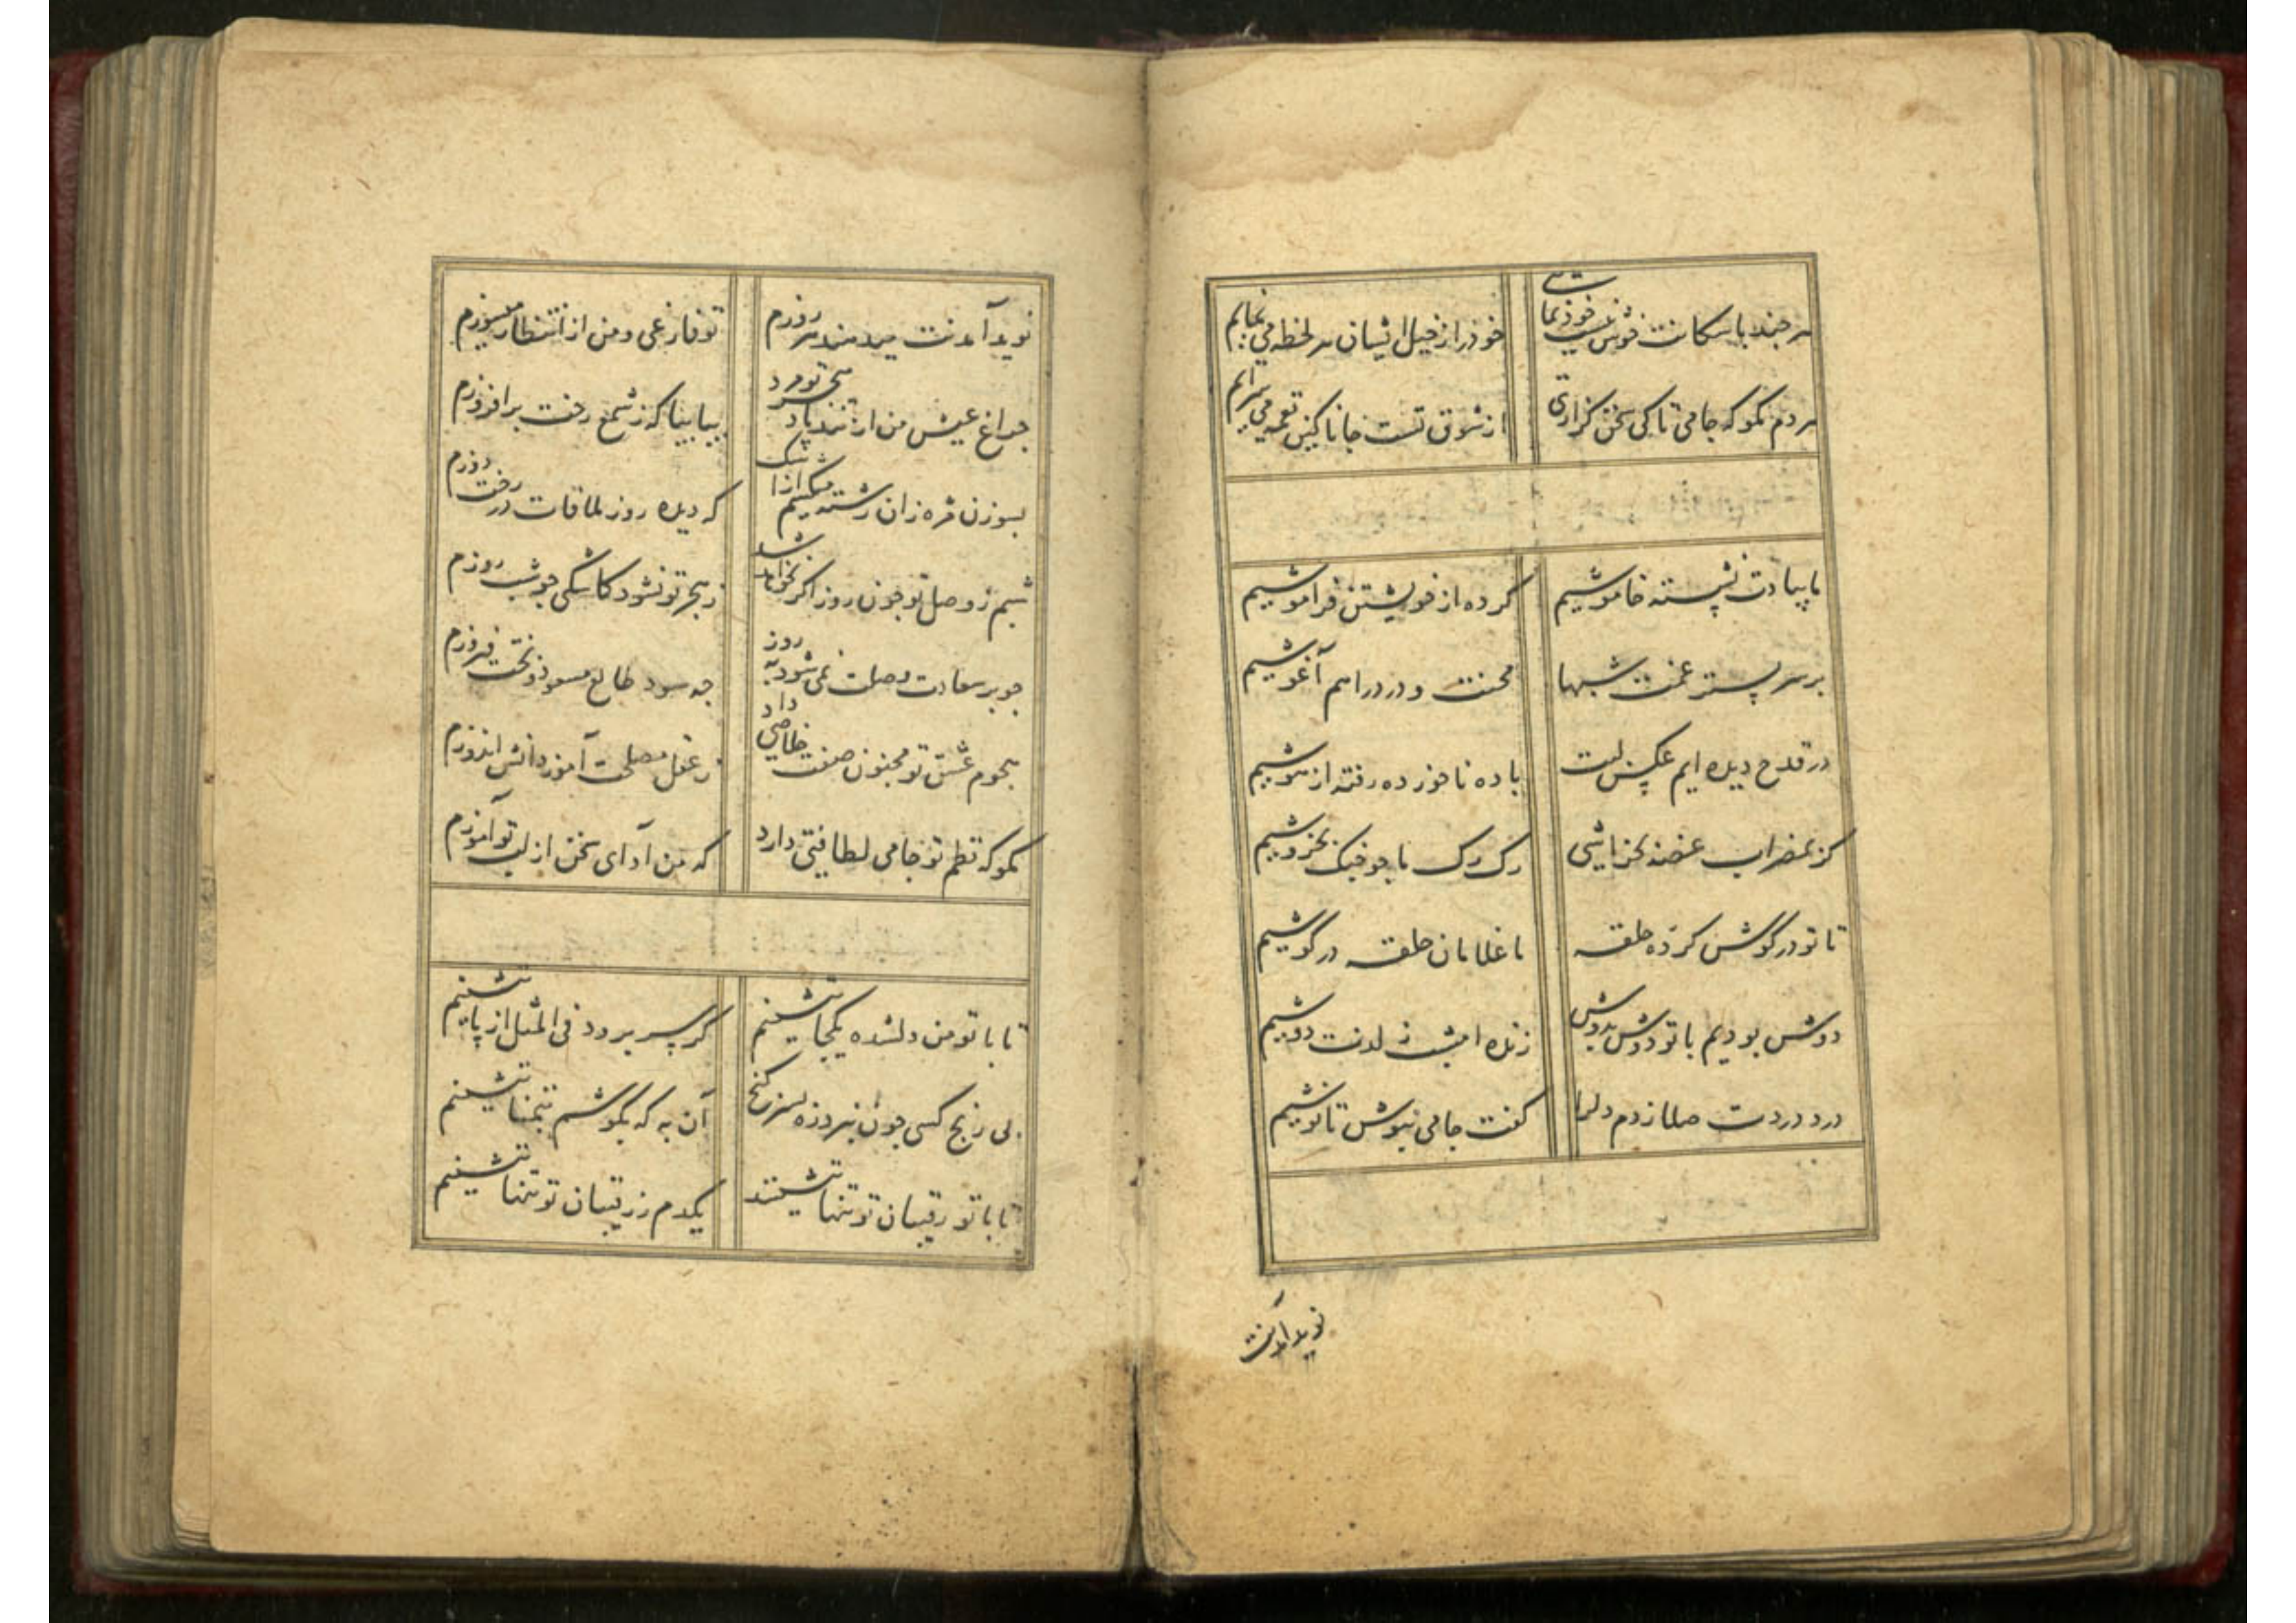 هر چند با سکانت خوش نیست خودنمائی خود را ز خیل ایشان هر لحظه می نمایم
هر دم مگو که جامی تا کی سخن گزاری از شوق تست جانا کین نغمه می سرایم
ما بیادت نشسته خاموشیم کرده از خویشتن فراموشیم
بر سر بستر غمت شبها محنت و درد را هم آغوشیم
در قدح دیده ایم عکس لبت باده ناخورده رفته از هوشیم
گر بمضراب غصه بخراشی رک رک ما چو چنک بخروشیم
تا تو در گوش کرده حلقه ما غلامان حلقه در گوشیم
دوش بودیم با تو دوش بدوش زنده امشب ز لذت دوشیم
درد دردت صلا زدم دلرا گفت جامی بنوش تا نوشیم
نوید آمدنت
نوید آمدنت میدهند هر روزم تو فارغی و من از انتظار میسوزم
چراغ عیش من از تند باد هجر تو مرد بیا بیا که ز شمع رخت برافروزم
بسوزن مژه زان رشته میکشم از اشک که دیده روز ملاقات در رخت دوزم
شبم ز وصل تو چون روز اگر نخواهد شد ز هجر تو نشود کاشکی چو شب روزم
چو بر سعادت وصلت نمی شوند به روز چه سود طالع مسعود و بخت فیروزم
هجوم عشق تو مجنون صفت خلاصی داد ز عقل مصلحت آموز دانش اندوزم
مگو که نظم تو جامی لطافتی دارد که من ادای سخن از لب تو آموزم
تا با تو من دلشده یکجا ننشینم گر سر برود فی المثل از پا ننشینم
بی رنج کسی چون نبرد ره بسر گنج آن به که بکوشم بتمنا ننشینم
تا با تو رقیبان تو تنها ننشینند یکدم ز رقیبان تو تنها ننشینم